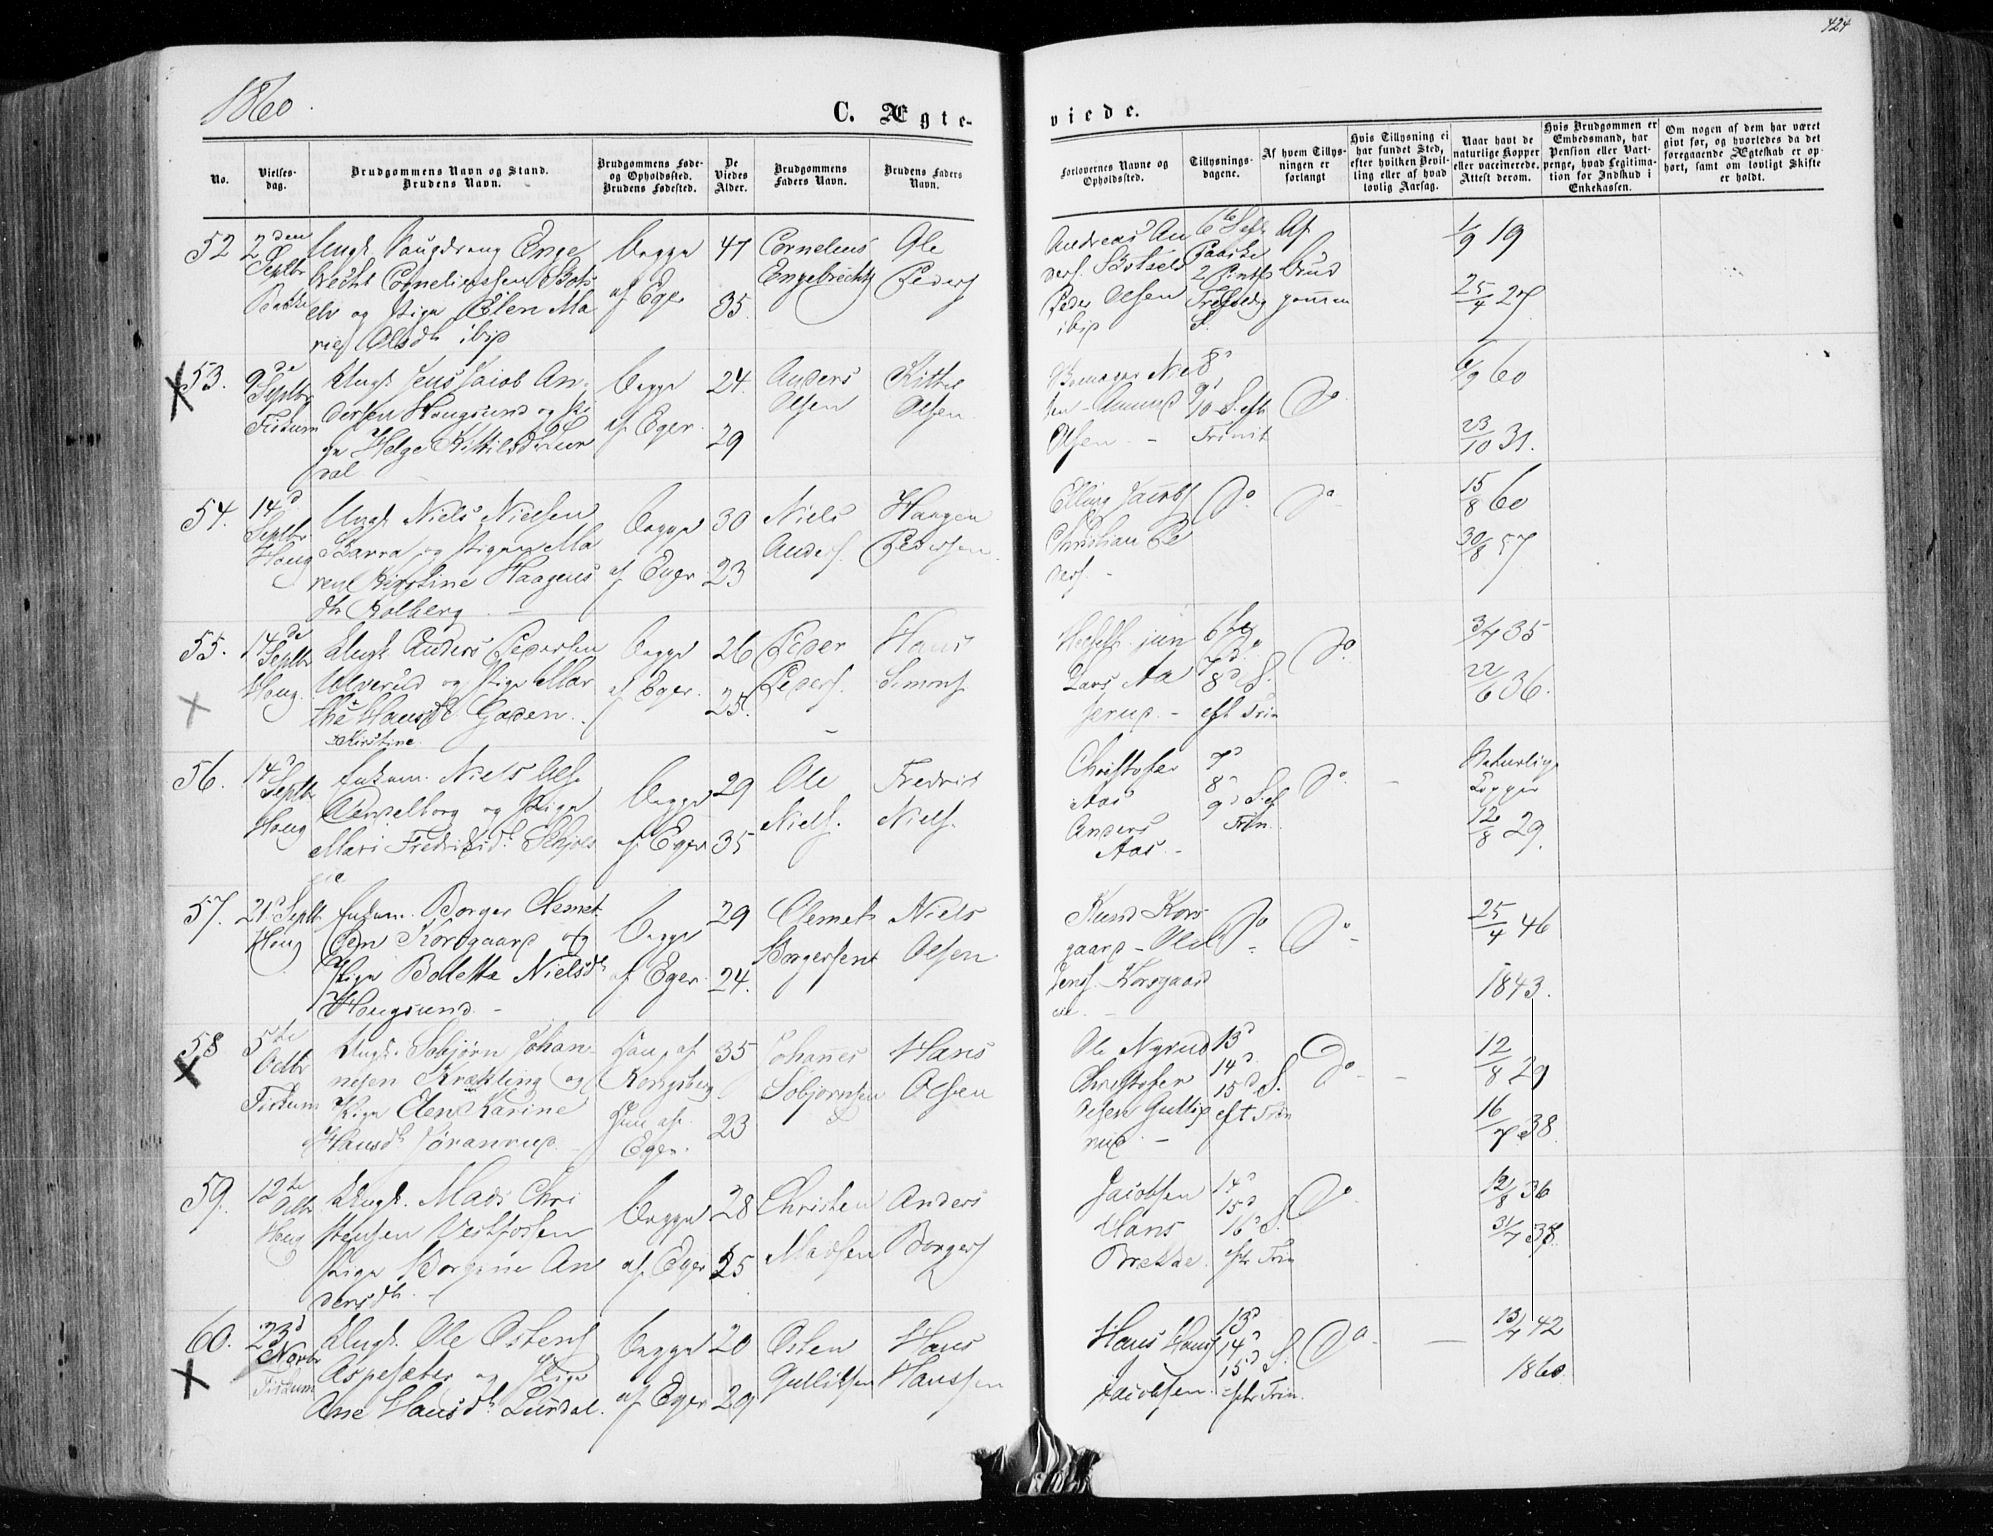 424
1860.
C. Ægte-
viede.
No.
Vielses-
dag.
Brudgommens Navn og Stand.
Brudens Navn.
Brudgommens Føde-
og Opholdssted.
Brudens Fødested.
De
Viedes
Alder.
Brudgommens
Faders Navn.
Brudens Faders
Navn.
Forlovernes Navne og
Opholdssted.
Tillysnings-
dagene.
Af hvem Tillys-
ningen er
forlangt
Hvis Tillysning ei
har fundet Sted,
efter hvilken Bevil-
ling eller af hvad
lovlig Aarsag.
Naar havt de
naturlige Kopper
eller vaccinerede.
Attest derom.
Hvis Brudgommen er
Embedsmand, har
Pension eller Vart-
penge, hvad Legitima-
tion for Indskud i
Enkekassen.
Om nogen af dem har været
gift før, og hvorledes da det
foregaaende Ægteskab er op-
hørt, samt om lovligt Skifte
er holdt.
52 2den Septbr
Ungk. Enge
brecht Corneliussen
og Pige Elen Ma
rie Olsdtr ibid
begge af Eger 47 35
Cornelius Engebrechts
Ole Peders
Andreas An
ders.
Peder Olsen
ibid
Af Brud
gommen
1/9 19
25/4 27
53. 9de Septbr Fiskum
Ungk. Jens Jacob An-
dersen Hougsund og Pi
ge Helge Kittilsdtr
begge af Eger. 24. 29
Anders Olsen
Kittil Olsen
Olsen. -
8d
9d
10 S. eft
Trinit
Do
6/9 60
23/10 31.
54. 14d Septbr Houg
Ungk. Niels Nielsen
Barra og Pigen Ma
ren Kirstine Haagens
dtr Kolberg
begge af Eger 30 23
Niels Anders.
Haagen Pedersen
Elling Jacobs
Christian Pe
ders. -
Do. Do
15/8 60
30/8 57
55. 14de Septbr Houg.
Ungk Anders Pedersen
Ulverud og Pige Mar
the Hansdtr Gaden.
Kirstine
begge af Eger. 26 25.
Peder Peders.
Hans Simons.
Lars Aa
serud. -
7d
8d S.
eft Trin
Do.
3/7 35
22/6 36.
56. 14d Septbr Houg
Enkem. Niels Ols.
og Pige
Mari Fredriksdtr
begge af Eger 29 35
Ole Niels.
Fredrik Niels.
Christofer
Aas
Anders
Aas. -
7d
8d
9d S. ef
Trin.
Do.
Naturlige
Kopper
12/8 29.
57. 21d Septbr Houg
Enkem. Borger Clemet
sen Korsgaard og
Pige Bolletta Nielsdtr
Hougsund. -
begge af Eger. 29 24.
Clemet Borgersen
Niels Olsen
Knud Kors
gaard - Ole
Jens. Korsgaard
Do Do
25/4 46
1843.
58 5te Octbr Fiskum
Ungk. Sobjørn Johan-
nesen Krækling og
Pige Elen Karine
Hansdtr Jøranrud.
Han af
Kongsberg
Hun af
Eger.
35 23
Johanes Sobjørnsen
Hans Olsen
Ole Nyrud
Christofer
Olsen Gullip
rud. -
13d
14d.
15d S.
eft Trin
Do
12/8 29
16/7 38
59. 12te Octbr Houg
Ungk. Mads Chri
stensen Vestfossen
Pige Borgine An
dersdtr. -
begge af Eger 28 25
Christen Madsen
Anders Borgers
Jacobsen
Hans
Brække.
14d
15d
16d S.
eftr Trin
Do
12/8 36
31/7 38.
60. 23d Novbr Fiskum
Ungk. Ole Østens
Aspesæter og Pige
Ane Hansdtr Lurdal.
begge af Eger 20 29
Østen Gulliksen
Hans Hanssen
Hans Hans
Jacobsen.
13d
14d
15d S.
eftr Trin.
Do
13/7 42
1860